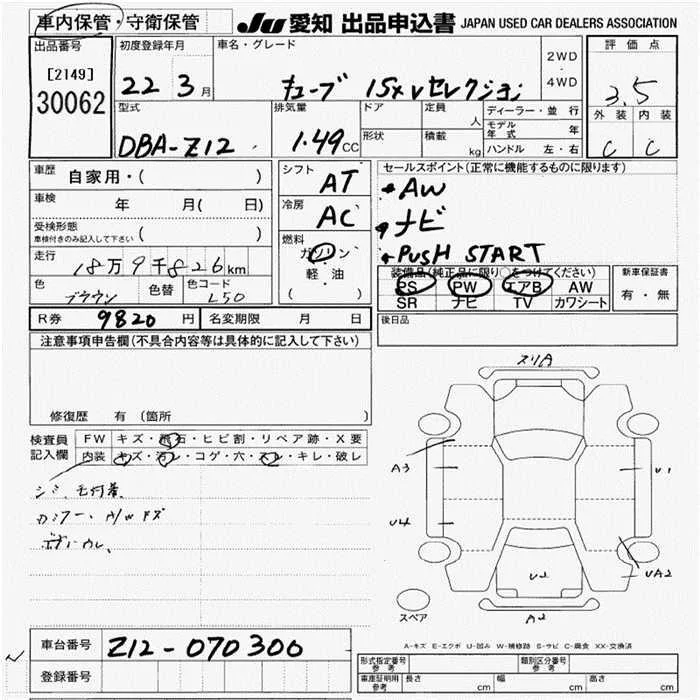 車内保管・守衛保管
JU 愛知 出品申込書 JAPAN USED CAR DEALERS ASSOCIATION
出品番号
[2149]
30062
初度登録年月
22 3月
車名・グレード
キューブ 15X Vセレクション
2WD
・
4WD
評価点
3.5
外装 内装
C C
型式
DBA-Z12
排気量
1.49cc
ドア
定員
人
形状
積載
kg
ディーラー・並行
モデル年式 年
ハンドル 左・右
車歴 自家用・( )
車検 年 月( 日)
受検形態
車検付きのみ記入して下さい ( )
走行 18万9千826km
色 ブラウン
色替
色コード L50
シフト AT
冷房 AC
燃料
ガソリン
軽・油
( )
セールスポイント(正常に機能するものに限ります)
・AW
・ナビ
・PUSH START
装備品(純正品に限り○をつけてください)
PS PW エアB AW
SR ナビ TV カワシート
新車保証書
有・無
R券 9820円
名変期限 月 日
後日品
注意事項申告欄(不具合内容等は具体的に記入して下さい)
修復歴 有 (箇所 )
検査員記入欄
FW キズ・飛石・ヒビ割・リペア跡・X要
内装 キズ・汚レ・コゲ・穴・スレ・キレ・破レ
シミ、毛付着
スリA
A3
U4
U1
UA2
U2
A2
スペア
A-キズ E-エクボ U-凹み W-補修跡 S-サビ C-腐食 XX-交換済
車台番号 Z12-070300
登録番号
形式指定番号 参考
類別区分番号 参考
車庫証明用 参考
長さ cm
幅 cm
高さ cm